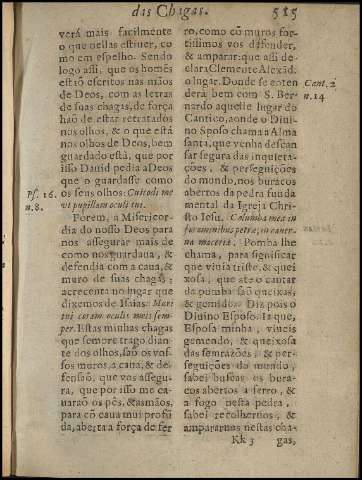 das Chagas. 515
verá mais facilmente
o que nellas estiuer, co
mo em espelho. Sendo
logo assi, que os homẽs
estão escritos nas mãos
de Deos, com as letras
de suas chagas, de força
hão de estar retratados
nos olhos, & o que está
nos olhos de Deos, bem
guardado està, que por
isso Dauid pedia a Deos
que o guardasse como
Ps. 16. os seus olhos: Custodi me
n.8. vt pupillam oculi tui.
Porém, a Misericor-
dia do nosso Deos para
nos assegurar mais de
como nos guardaua, &
defendia com a caua, &
muro de suas chagas,
acrecenta no lugar que
dixemos de Isaias: Muri
tui coram oculis meis sem-
per. Estas minhas chagas
que sempre trago dian-
te dos olhos, são os vos-
sos muros, a caua, & de-
fensoõ, que vos assegu-
ra, que por isso me ca-
uaraõ os pès, & as mãos,
para cõ caua mui profũ
da, aberta a força de fer
ro, como cõ muros for-
tissimos vos defender,
& amparar: que assi de-
clara Clemente Alexãd.
o lugar. Donde se enten
derà bem com S. Ber-
nardo aquelle lugar do
Cantico, aonde o Diui-
no Sposo chama a Alma
santa, que venha descan
sar segura das inquieta-
ções, & perseguições
do mundo, nos buracos
abertos da pedra funda
mental da Igreja Chri-
sto Iesu. Columba mea in
foraminibus petræ, in cauer-
na maceriæ. Pomba lhe
chama, para significar
que viuia triste, & quei
xosa, que ate o cantar
da pomba são queixas,
& gemidos. Diz pois o
Diuino Esposo. Ia que,
Esposa minha, viueis
gemendo, & queixosa
das semrazões, & per-
seguições do mundo,
sabei buscar os bura-
cos abertos a ferro, &
a fogo nesta pedra,
sabei recolheruos, &
ampararuos nestas cha-
Cant. 2
n. 14
Kk 3 gas,